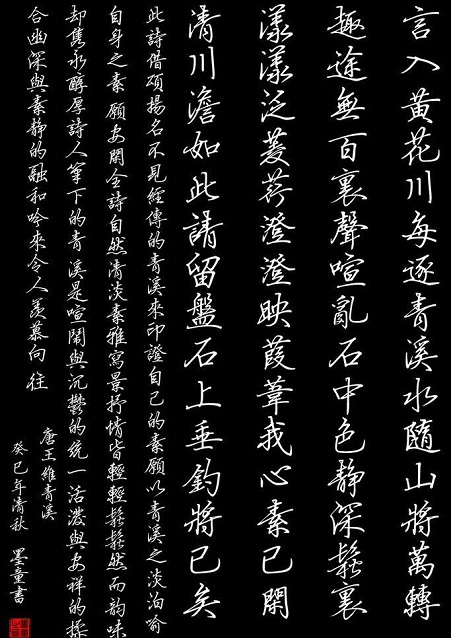 言入黄花川每逐青溪水隨山將萬轉
趣途無百裏聲喧亂石中色靜深鬆裏
漾漾泛菱荇澄澄映葭葦我心素已閑
清川澹如此請留盤石上垂釣將已矣
此詩借碩揚名不見經傳的青溪來印證自己的素願以青溪之淡泊喻
自身之素願安閑全詩自然清淡素雅寫景抒情皆輕輕鬆鬆然而韵味
却雋永醇厚詩人筆下的青溪是喧鬧與沉鬱的統一活潑與安祥的揉
合幽深與素靜的融和吟來令人羨慕向往
唐王維青溪
癸巳年清秋 墨童書